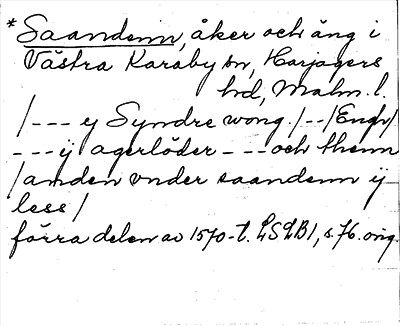 *Saandenn, åker och äng i
Västra Karaby sn, Harjagers
hd, Malm. l.
/--- ij Syndre wong. /--/Engh/
--- ij agerlöder --- och thenn
/anden vnder saandenn ij
less/
förra delen av 1570-t. LSLB1, s. 76. orig.